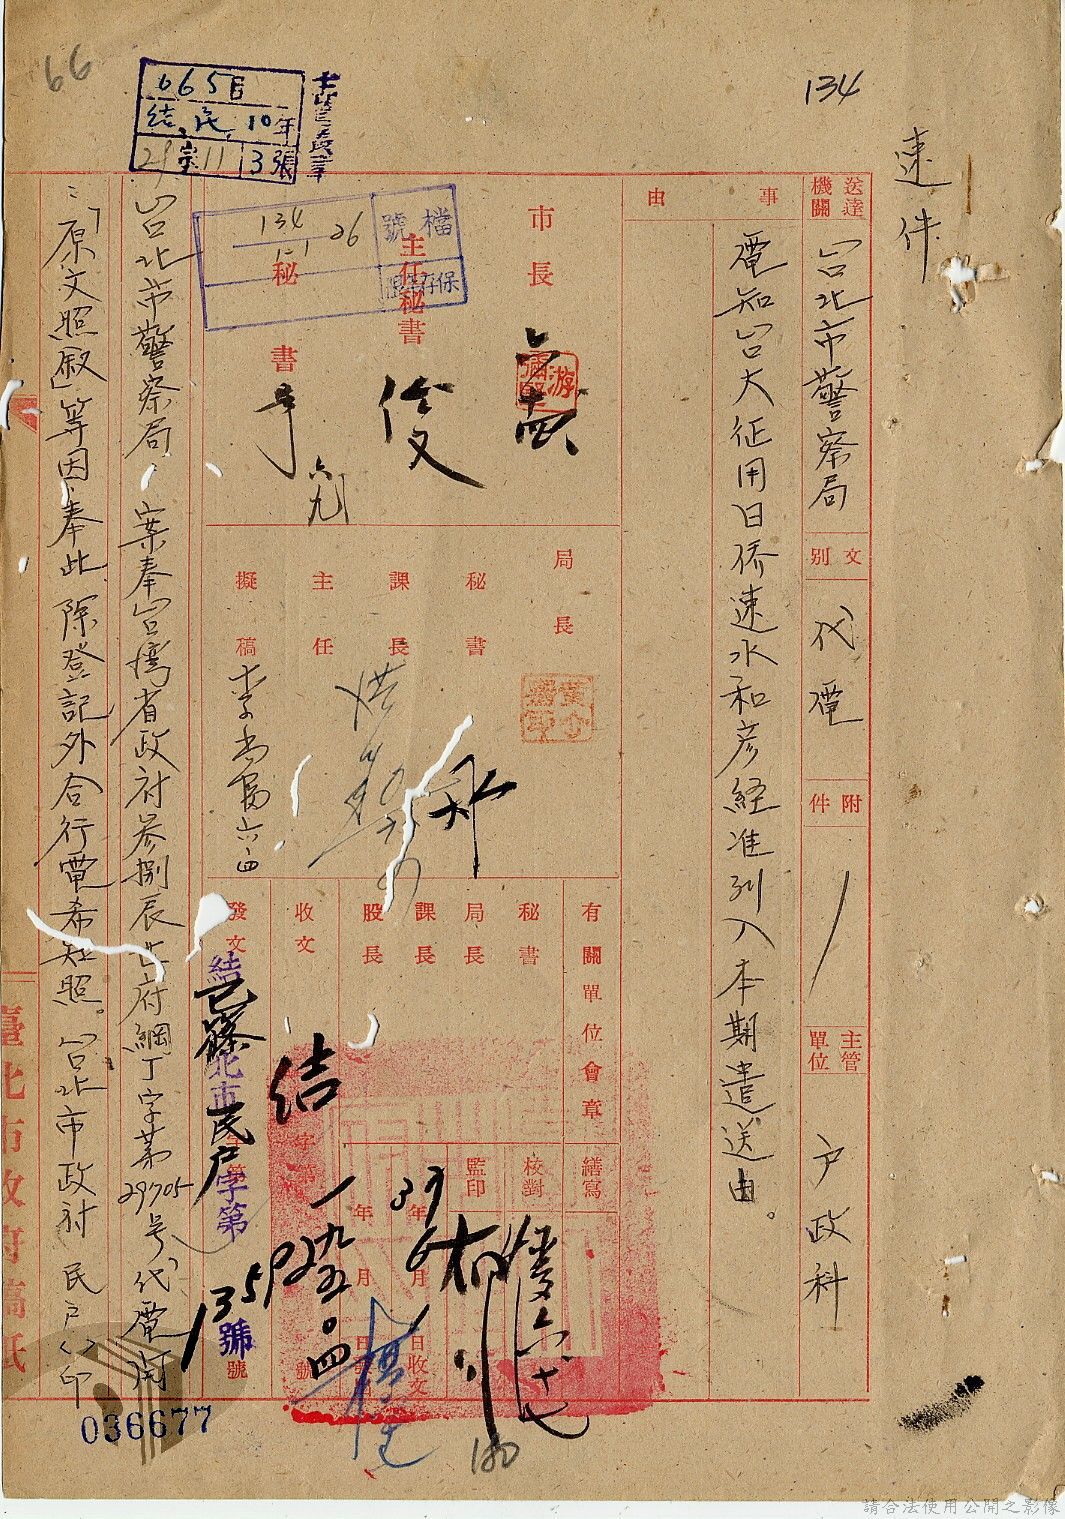 66
134
速件
665目
結民10年
29案11
3張
檔號
134
1-1
26
保存年限
送達機關
台北市警察局
文別
代電
附件
主管單位
户政科
事由
電知台大征用日侨速水和彦経准列入本期遣送由。
市長
主任秘書
秘書
六九
局長
秘書
課長
主任
擬稿
李
六、四
有關單位會章
秘書
局長
課長
股長
繕寫
校對
監印
收文
字第
號
年月日收文
年月日
結
一九五〇四
發文
結巳篠北市民户字第
13592
號
台北市警察局：案奉台湾省政府参捌辰
府綱丁字第29705号代電開
：「原文照叙」等因奉此除登記外合行電希知照。台北市政府民户（）印
臺北市政府稿紙
036677
180
請合法使用公開之影像